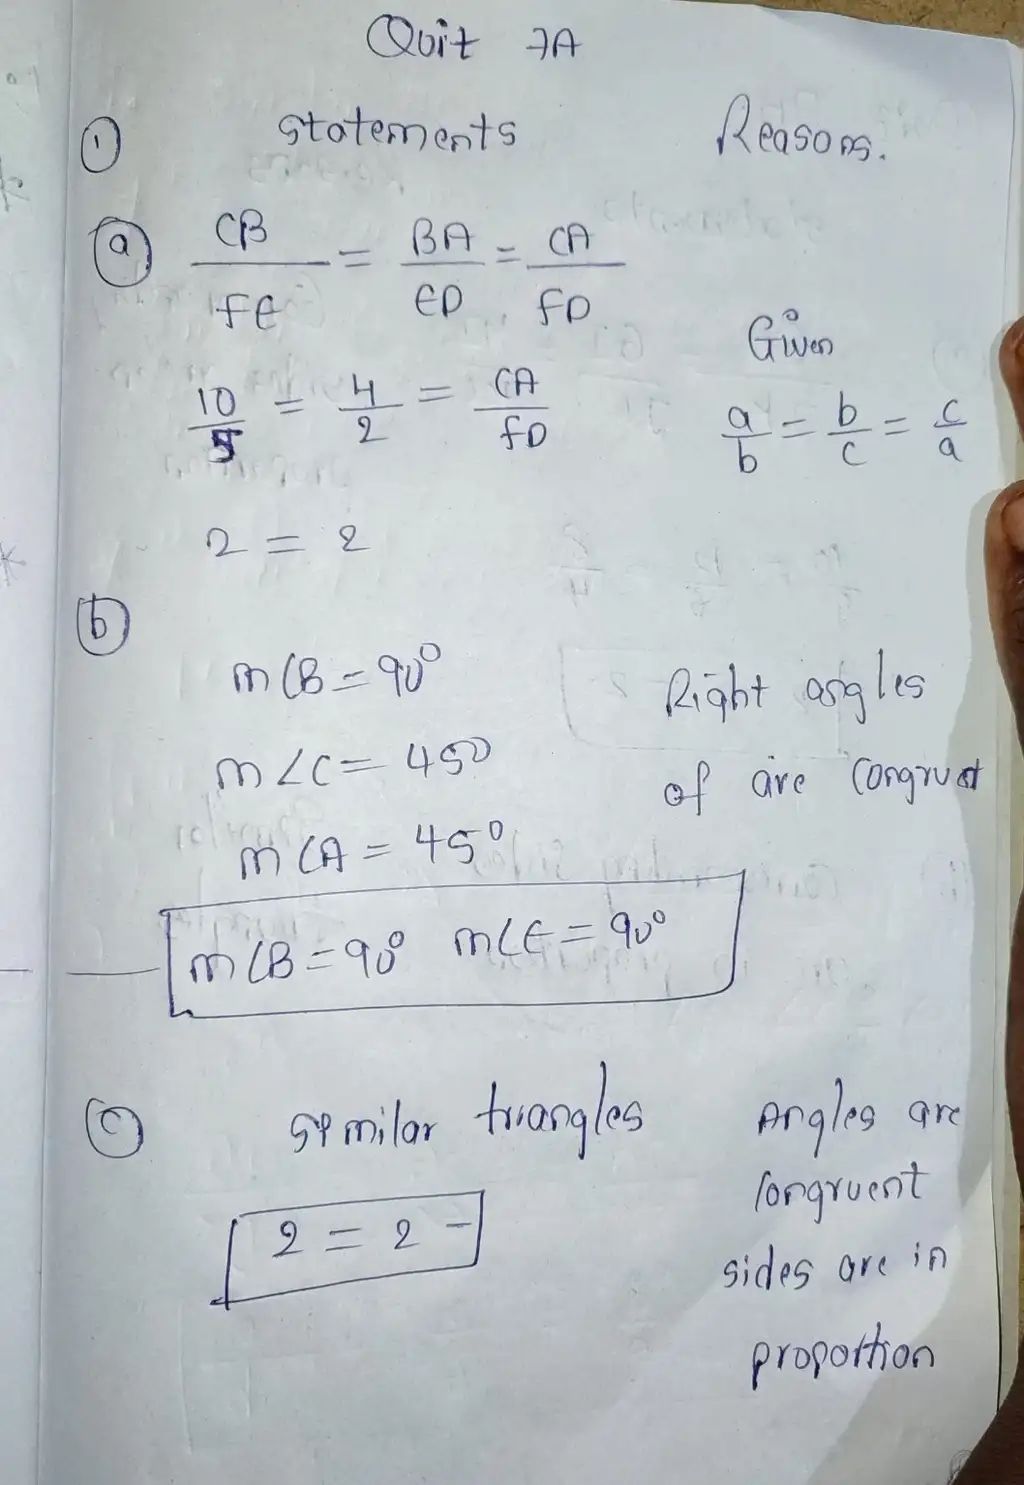 Quit 7A
① statements Reasons.
ⓐ CB/FE = BA/ED = CA/FD
Given
10/5 = 4/2 = CA/FD a/b = b/c = c/a
2 = 2
ⓑ
m∠B = 90° Right angles
m∠C = 450 of are congruet
m∠A = 45°
m∠B = 90° m∠E = 90°
ⓒ similar triangles Angles are
congruent
2 = 2 - sides are in
proportion